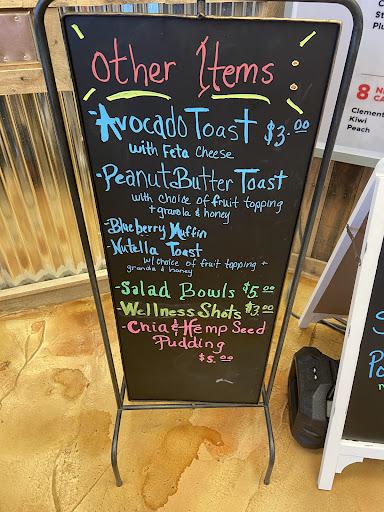 Other Items :
-Avocado Toast $3.00
with Feta Cheese
-Peanut Butter Toast
with choice of fruit topping
+ granola & honey
-Blueberry Muffin
-Nutella Toast
w/ choice of fruit topping +
granola & honey
-Salad Bowls $5.00
-Wellness Shots $3.00
-Chia & Hemp Seed
Pudding
$5.00
8
Clement
Kiwi
Peach